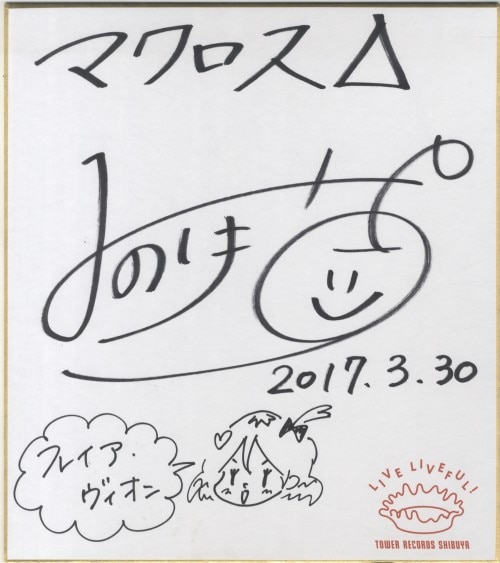 マクロスΔ
みのり
2017.3.30
フレイア・
ヴィオン
LIVE LIVEFUL!
TOWER RECORDS SHIBUYA